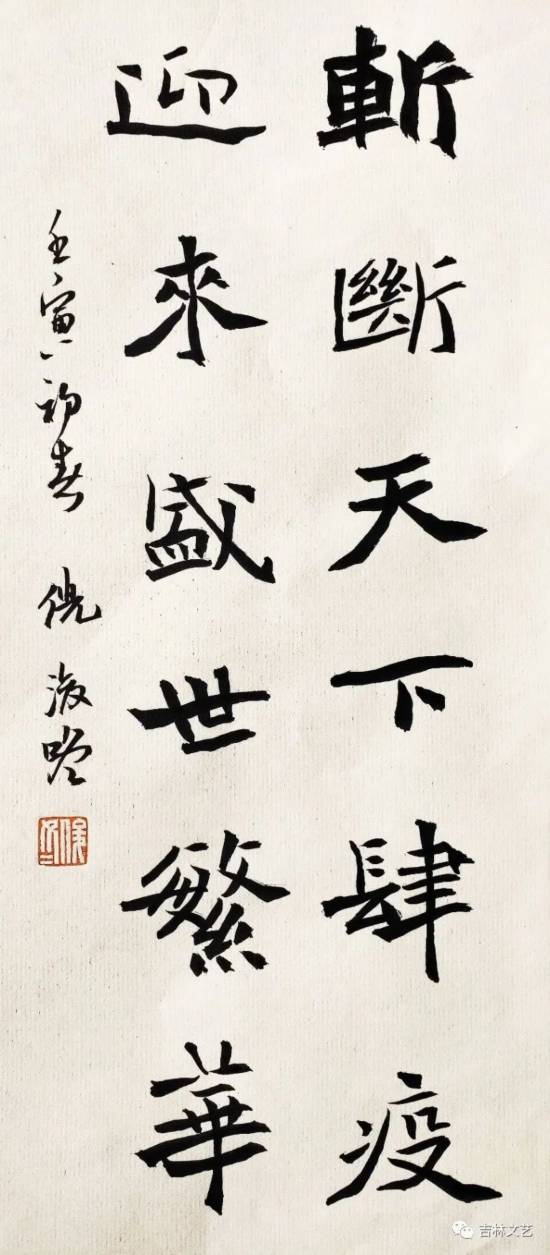 斬斷天下肆疫
迎來盛世繁華
壬寅初春 倪
吉林文艺